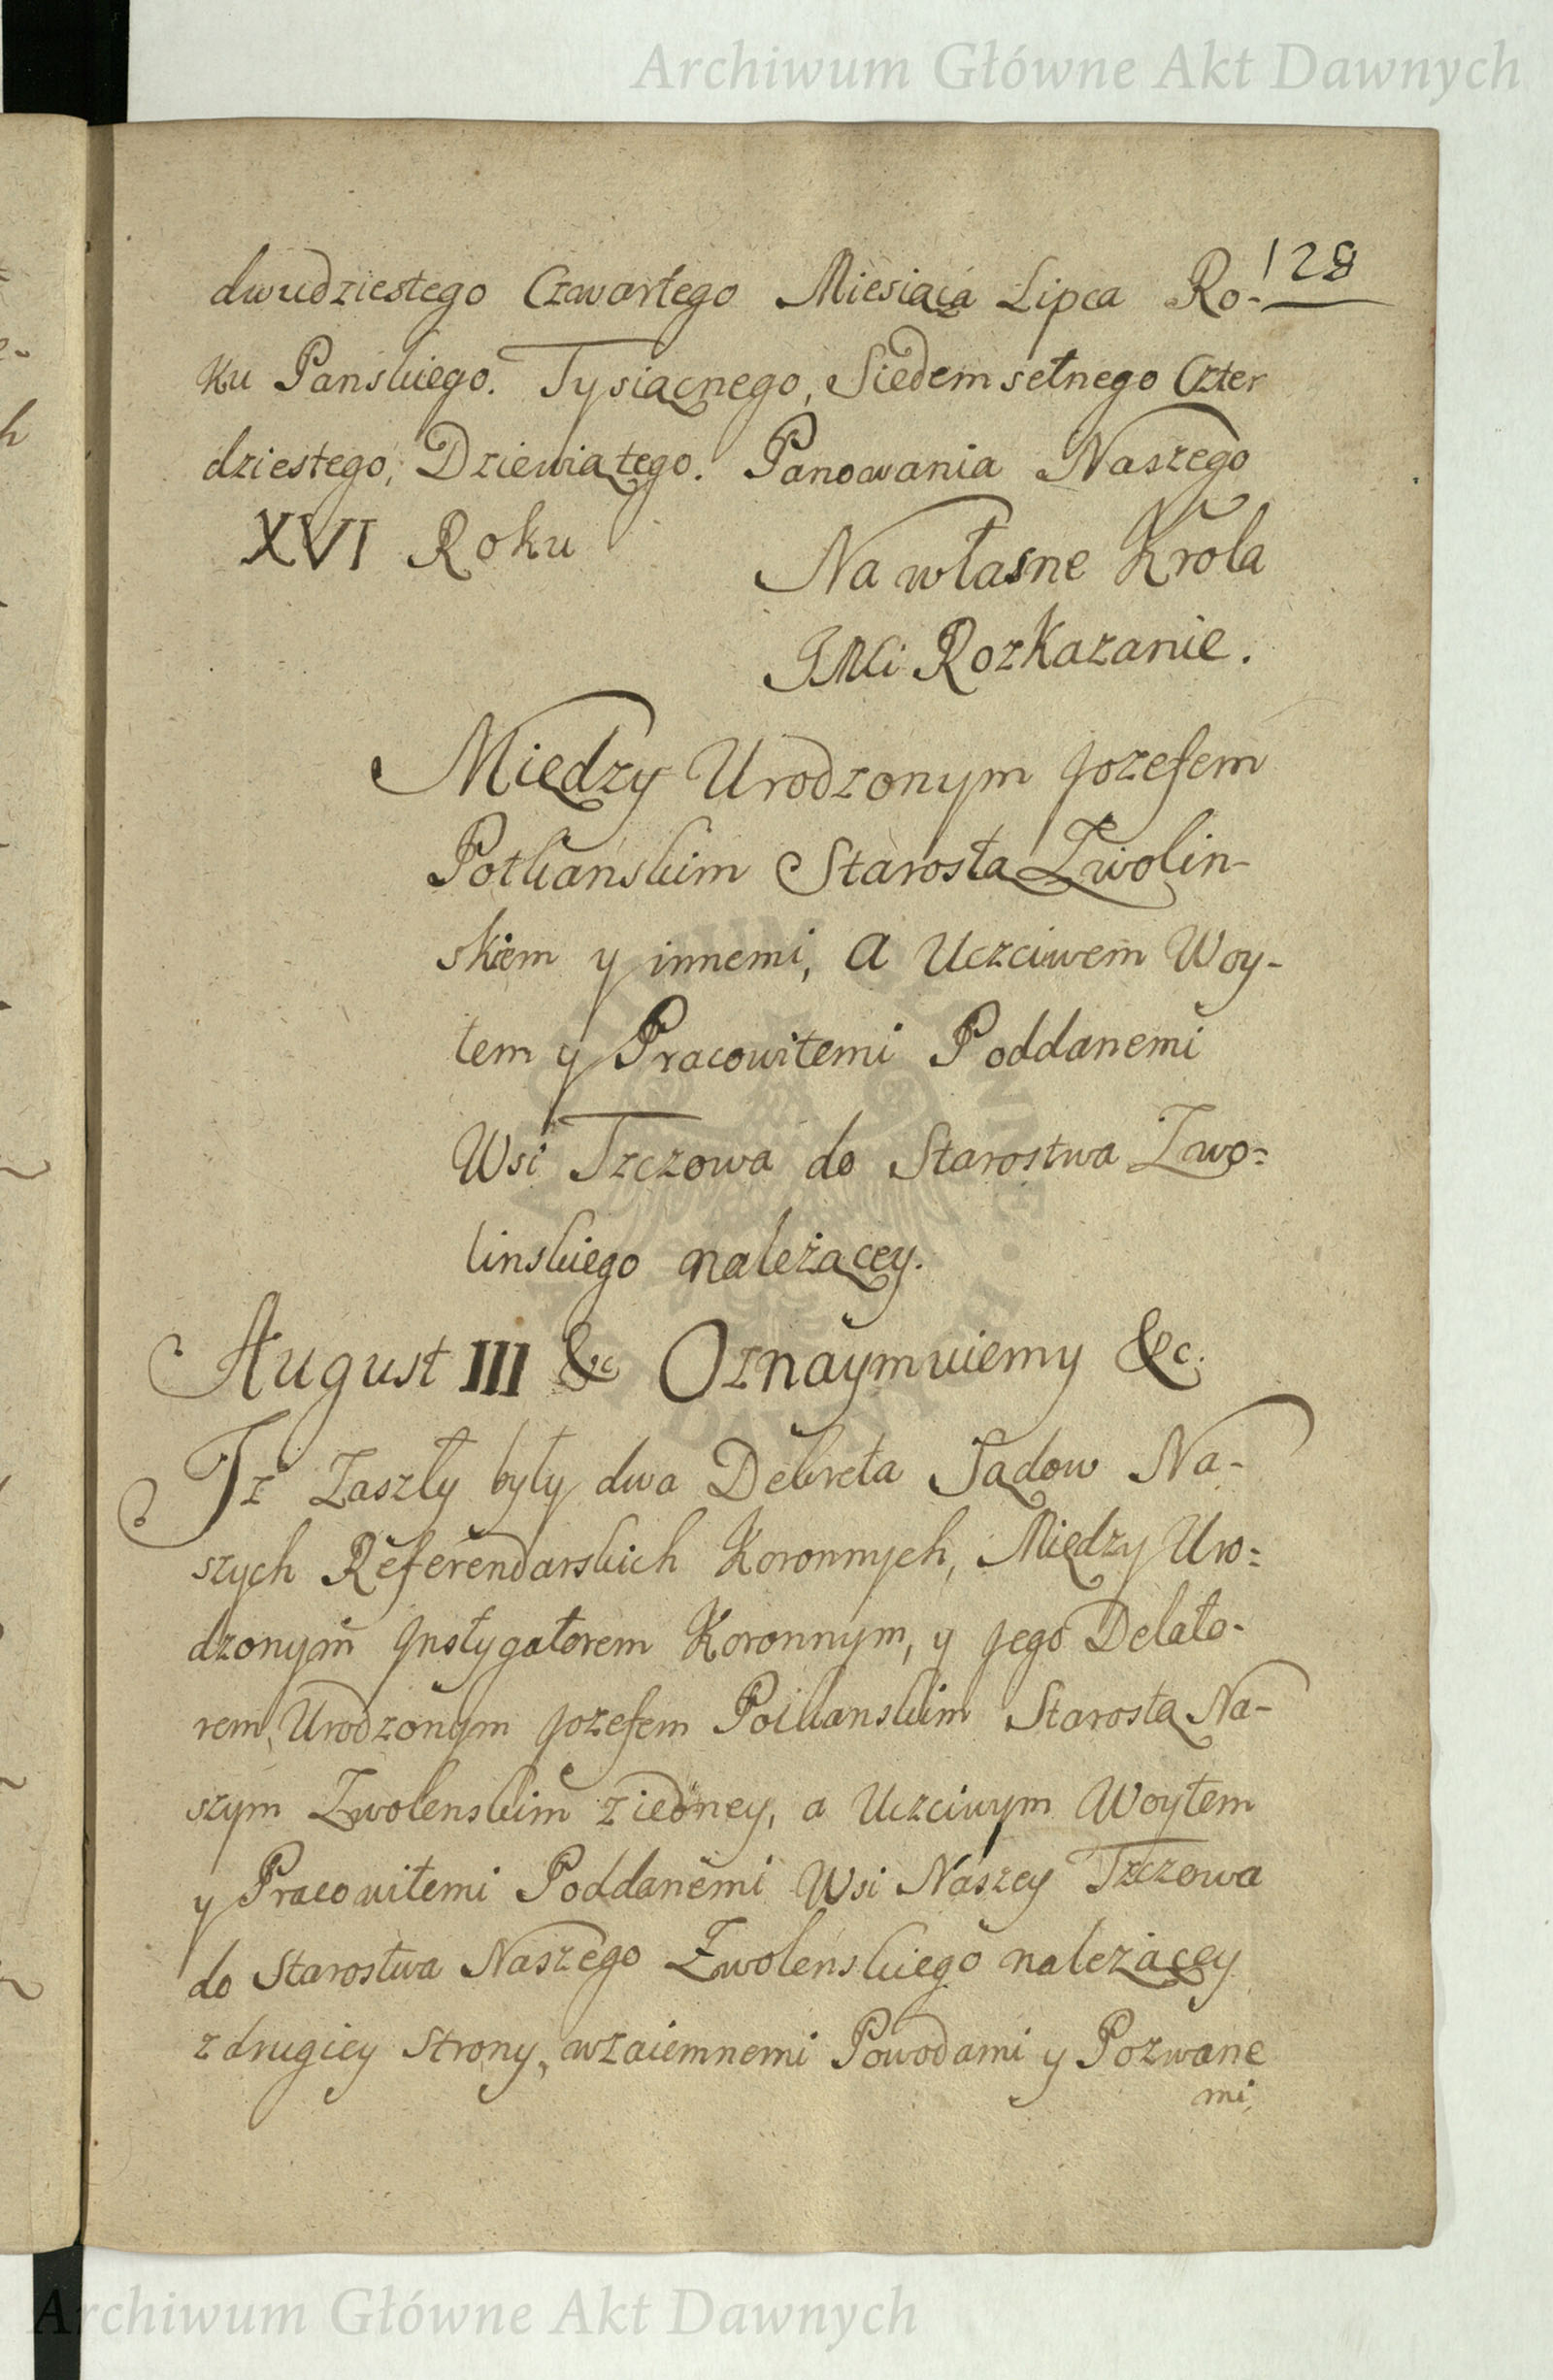 Archiwum Główne Akt Dawnych
128
dwudziestego Czwartego Miesiąca Lipca Ro-
ku Panskiego. Tysiącnego, Siedemsetnego Czter
dziestego, Dziewiątego. Panowania Naszego
XVI Roku
Na własne Krola
JMCi Rozkazanie.
Między Urodzonym Jozefem
Potkańskim Starostą Zwolin-
skiem y innemi, a Uczciwem Woy-
tem y Pracowitemi Poddanemi
Wsi Tzczowa do Starostwa Zwo-
linskiego należącey.
August III &c Oznaymuiemy &c.
Iż Zaszły były dwa Dekreta Sądow Na-
szych Referendarskich Koronnych, Między Uro-
dzonym Jnstygatorem Koronnym, y Jego Delato-
rem, Urodzonym Jozefem Potkanskim Starostą Na-
szym Zwolenskim ziedney, a Uczciwym Woytem
y Pracowitemi Poddanemi Wsi Naszey Tzczowa
do Starostwa Naszego Zwolenskiego należącey
z drugiey Strony, wzaiemnemi Powodami y Pozwane
mi,
Archiwum Główne Akt Dawnych